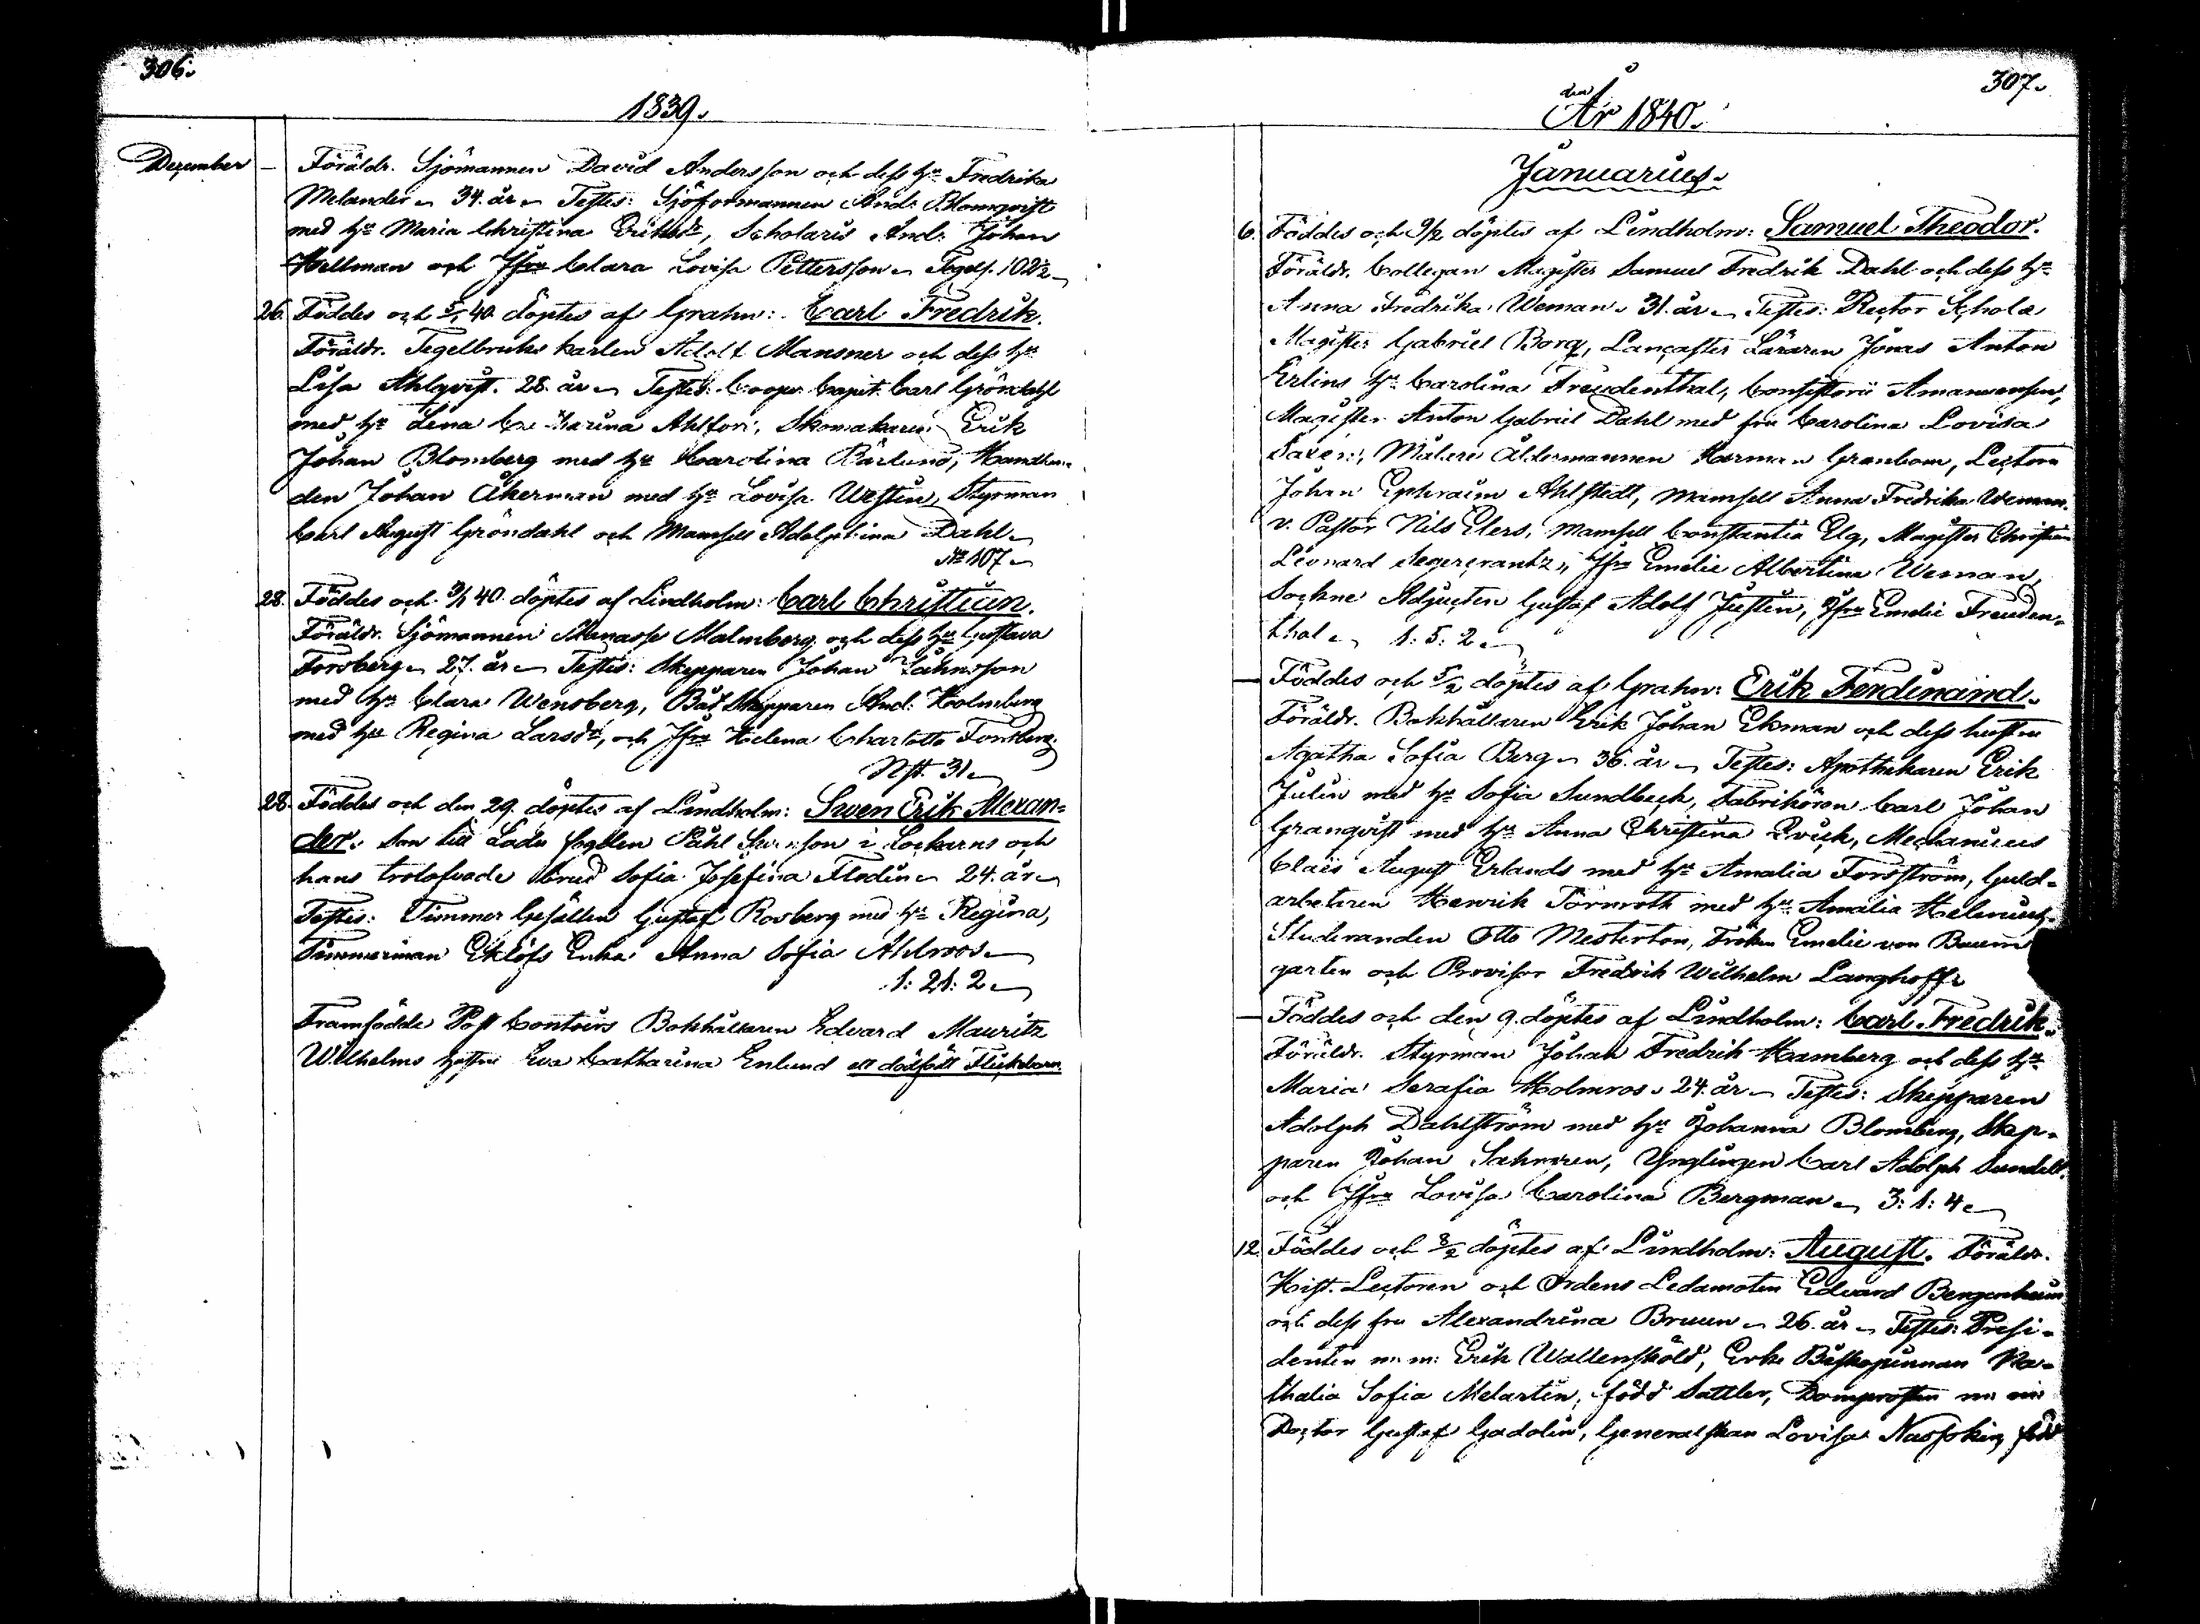 306.
1839.
December
Föräldr. Sjömannen David Andersson och dess h:u Fredrika
Melander 34. år Testes: Sjöformannen And: Blomqvist
med h:u Maria Christina Eriksd:r, Scholaris And: Johan
Hellman och Jfru Clara Lovisa Pettersson Tegels. 102½
26. Föddes och 5/1 40 döptes af Grahn: Carl Fredrik.
Föräldr. Tegelbruks karlen Adolf Mansner och dess h:u
Lisa Ahlqvist. 28. år Testes: Cooper. Capit. Carl Gröndahl
med h:u Lena Ahlfors, Skomakaren Erik
Johan Blomberg med h:u Karolina Bärlund, Handlan-
den Johan Åkerman med h:u Lovisa Westin, Styrman
Carl August Gröndahl och Mamsell Adolphina Dahl
N:o 107
28. Föddes och 3/1 40 döptes af Lindholm: Carl Christian.
Föräldr. Sjömannen Manasse Malmberg och dess h:u Gustava
Forsberg 27. år Testes: Skepparen Johan
med h:u Clara Wensberg, Båd Skepparen And: Holmberg
med h:u Regina Larsd:r, och Jfru Helena Charlotta Forsberg.
Nst. 31
28. Föddes och den 29. döptes af Lindholm: Swen Erik Alexan=
der. Son till Ladu fogden Påhl Swensson i Lockarns och
hans trolofvade brud Sofia Josefina Flodin 24. år
Testes: Timmer Gesällen Gustaf Rosberg med h:u Regina,
Timmerman Eklöfs Enka Anna Sofia Ahlroos
1: 21: 2
Framfödde Post Contoirs Bokhållaren Edvard Mauritz
Wilhelms hustru Eva Catharina Enlund ett dödfödt Flickebarn.
307.
År 1840.
Januarius.
6. Föddes och 9/2 döptes af Lindholm: Samuel Theodor.
Föräldr. Collegan Magister Samuel Fredrik Dahl och dess h:u
Anna Fredrika Weman 31. år Testes: Rector Scholæ
Magister Gabriel Borg, Lancaster Läraren Jonas Anton
Erlins h:u Carolina Freudenthal, Consistorii Amanuensen,
Magister Anton Gabriel Dahl med fru Carolina Lovisa
Målare Åldermannen Herman Granbom, Lectorn
Johan Ephraim Ahlstedt, Mamsell Anna Fredrika Weman.
v. Pastor Nils Elers, Mamsell Constantia Elg, Magister Christian
Leonard Segercrantz, Jfru Emelie Albertina Weman,
Sockne Adjuncten Gustaf Adolf Justin, Jfru Emelie Freuden-
thal 1: 5: 2
Föddes och 5/2 döptes af Grahn: Erik Ferdinand.
Föräldr. Bokhållaren Erik Johan Ekman och dess hustru
Agatha Sofia Berg 36. år Testes: Apothekaren Erik
Julin med h:u Sofia Sundbeck, Fabrikören Carl Johan
Granqvist med h:u Anna Christina Qvick, Mechanicus
Claës August Erlands med h:u Amalia Forsström, Guld=
arbetaren Henrik Törnroth med h:u Amalia Helenius,
Studeranden Otto Mesterton, Fröken Emelie von Baum
garten och Provisor Fredrik Wilhelm Langhoff
Föddes och den 9. döptes af Lindholm: Carl Fredrik.
Föräldr. Styrman Johan Fredrik Hamberg och dess h:u
Maria Serafia Holmroos 24. år Testes: Skepparen
Adolph Dahlström med h:u Johanna Blomberg, Skep-
paren Johan Ynglingen Carl Adolph Sundell
och Jfru Lovisa Carolina Bergman 3: 1: 4
12. Föddes och 8/2 döptes af Lindholm: August. Föräldr.
Hist. Lectoren och Ordens Ledamoten Edvard Bergenheim
och dess fru Alexandrina Bruun 26. år Testes: Presi=
denten m. m: Erik Wallensköld, Erke Biskopinnan Na-
thalia Sofia Melartin, född Sattler, Domprosten m: m:
Doctor Gustaf Gadolin, Generalskan Lovisa Nassokin, född